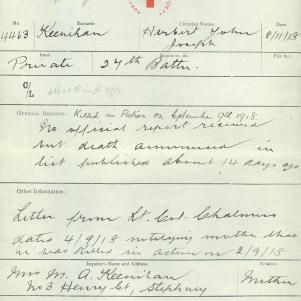 No.
Surname.
Christian Names.
4463 Keenihan Herbert John 8/11/18
Joseph
Rank.
Regiment, &c.
File No.
Private 27th Battn.
O/L
OFFICIAL REPORTS: Killed in Action on September 9th 1918.
No official report received
but death announced in
list published about 14 days ago
Other Information:
Letter from Lt. Col. Chalmers
dated 4/9/18 notifying mother that
he was killed in action on 2/9/18
Inquirer's Name and Address.
Relation.
Mrs M. A. Keenihan Mother
No 3 Henry Ct, Stephney